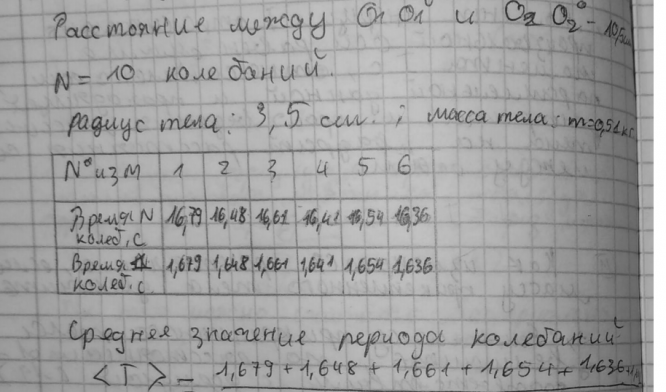 Расстояние между O₁ O₁' и O₂ O₂' - 10,5см
N = 10 колебаний.
радиус тела: 3,5 см. ; масса тела: m=0,52кг
N° изм 1 2 3 4 5 6
Время N колеб, с 16,79 16,48 16,61 16,41 16,54 16,36
Время колеб, с 1,679 1,648 1,661 1,641 1,654 1,636
Среднее значение периода колебаний
<T> = 1,679 + 1,648 + 1,661 + 1,654 + 1,636+